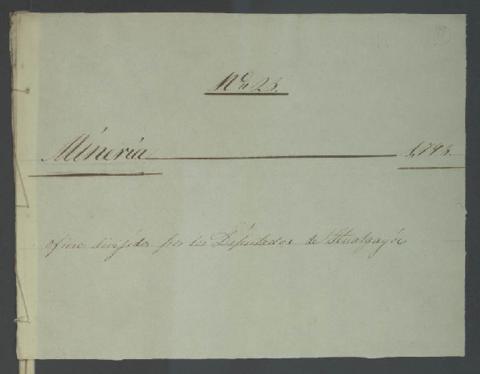 No 23.
Mineria 1,793.
ofico dirijido por los Diputados de Hualgayóc